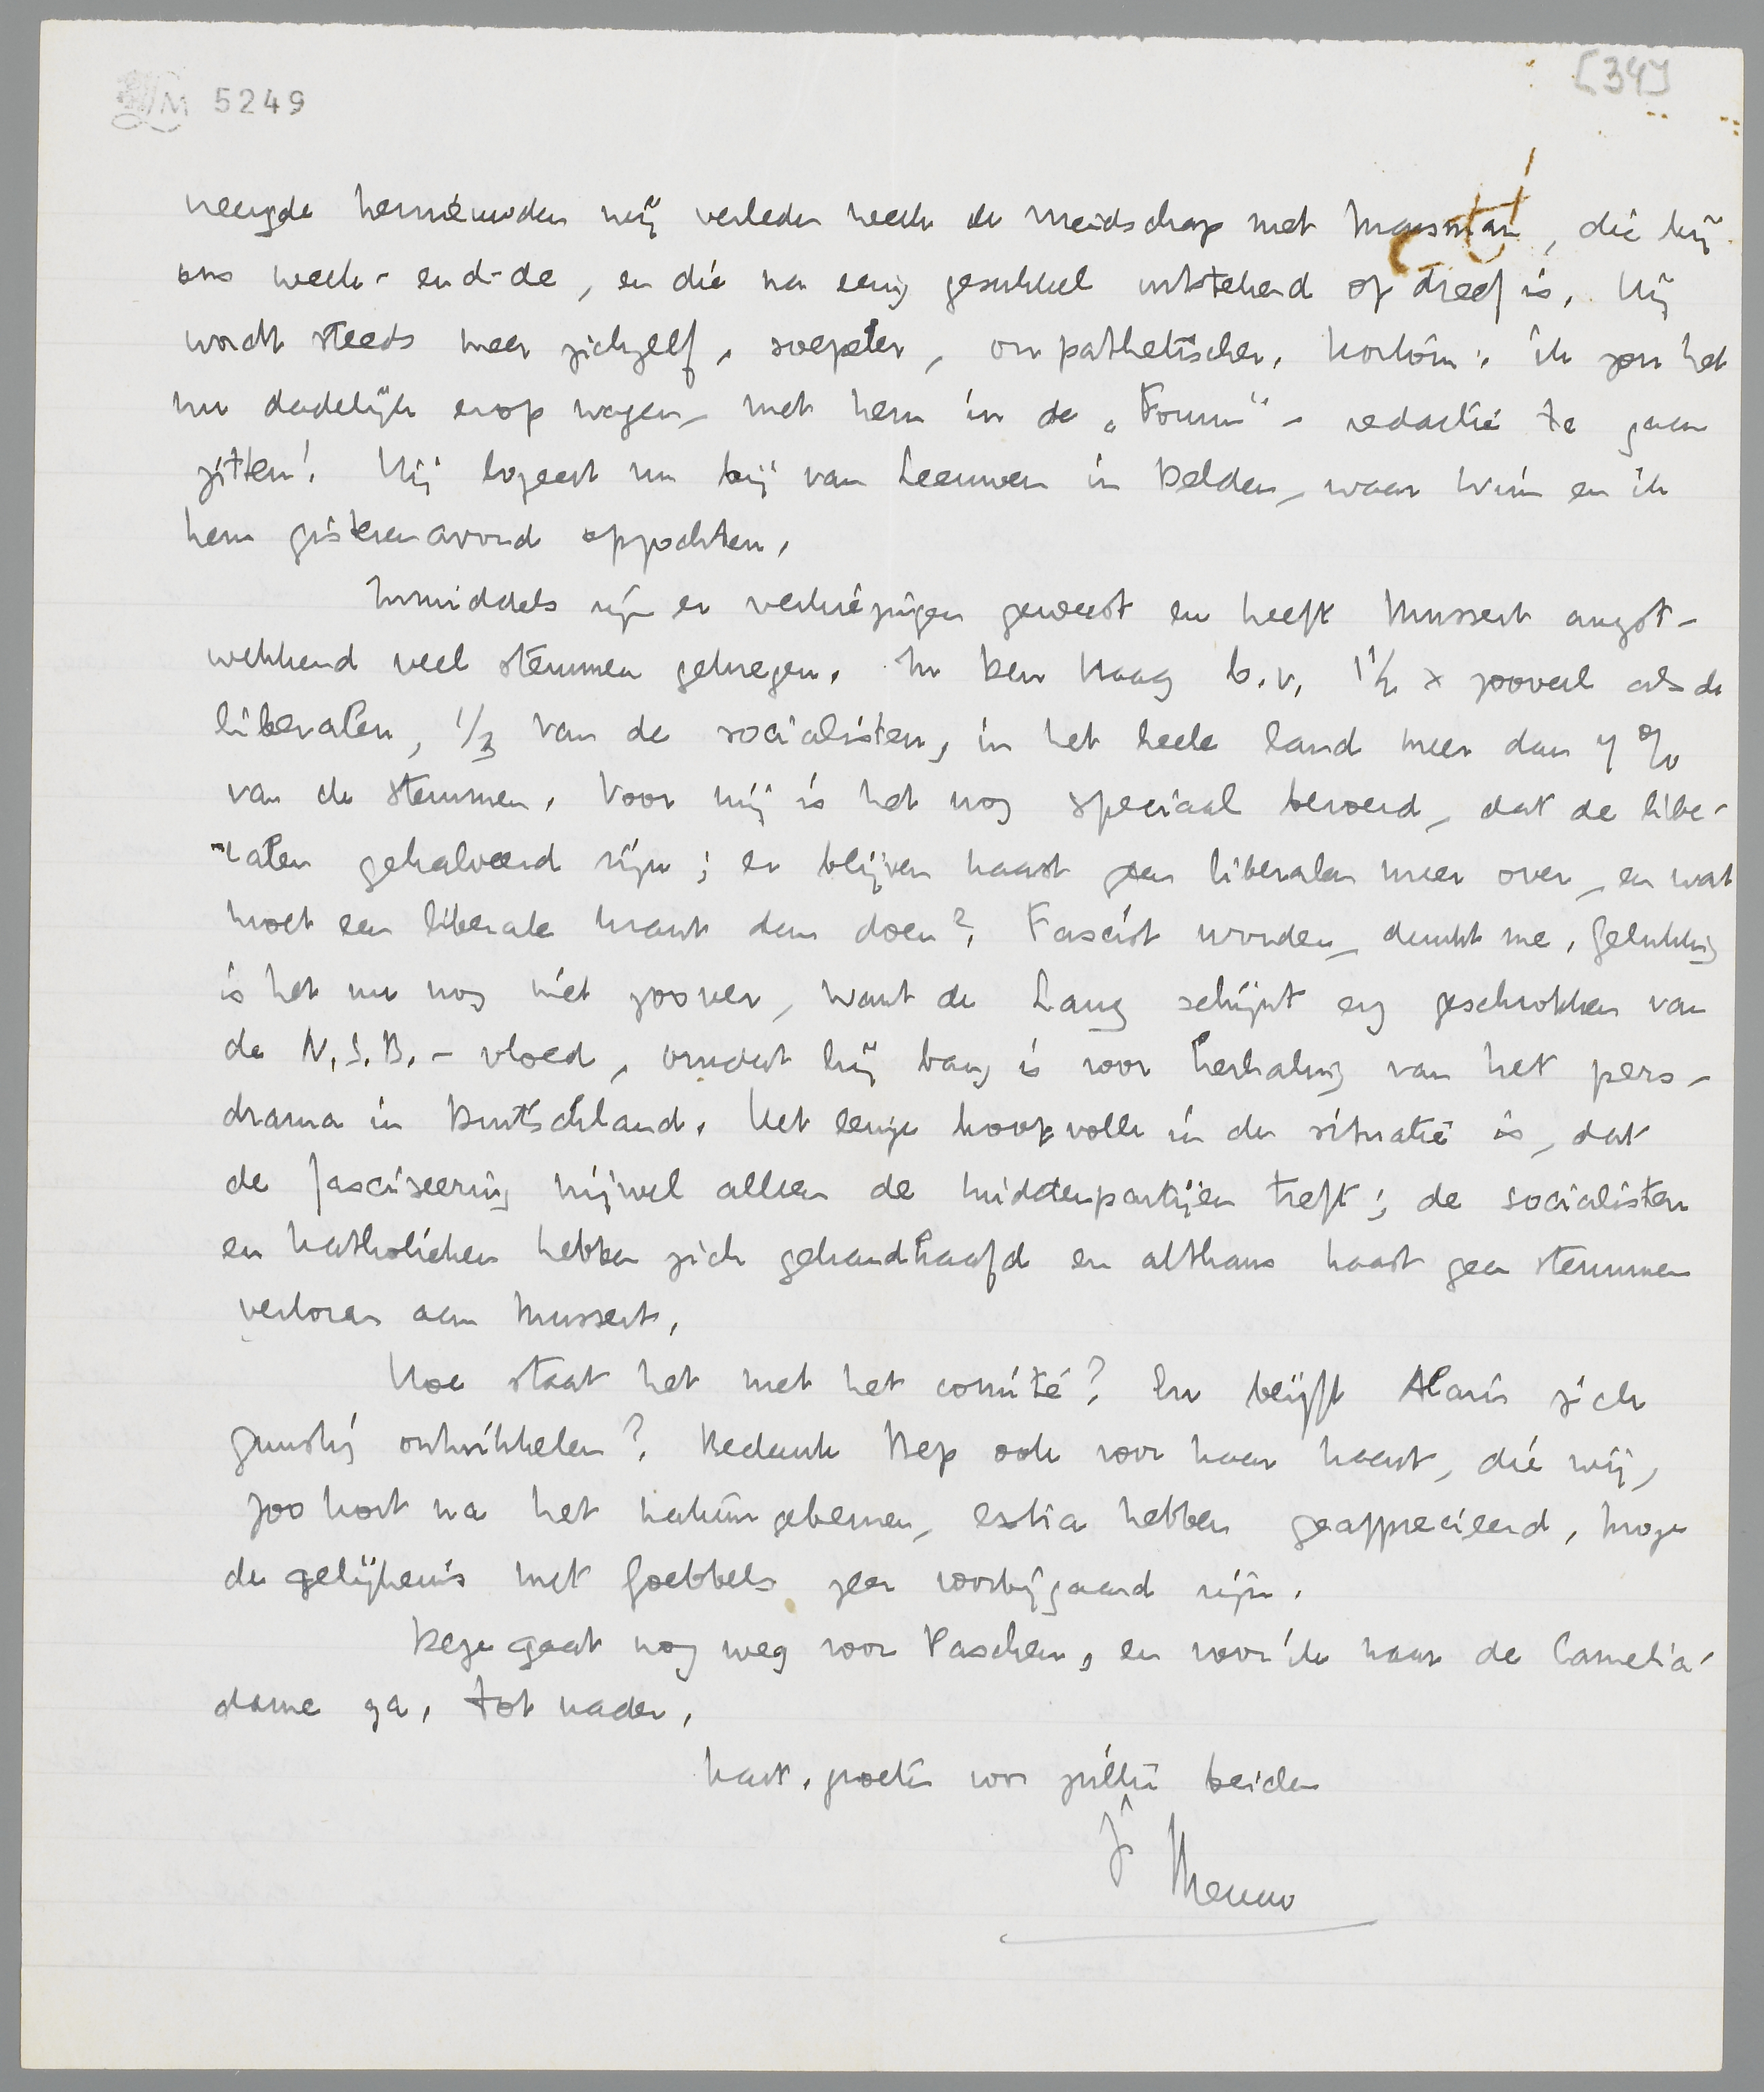 5249
[34]
neugde hernieuwden wij verleden week de vriendschap met Marsman, die bij
ons week-end-de, en die na eenig gesukkel uitstekend op dreef is. Hij
wordt steeds meer zichzelf, soepeler, onpathetischer, kortom: ik zou het
nu dadelijk erop wagen, met hem in de „Forum"-redactie te gaan
zitten! Hij logeert nu bij van Leeuwen in Delden, waar Wim en ik
hem gisterenavond opzochten.
Inmiddels zijn er verkiezingen geweest en heeft Mussert angst-
wekkend veel stemmen gekregen. In Den Haag b.v. 1½ x zooveel als de
liberalen, 1/3 van de socialisten, in het heele land meer dan 7%
van de stemmen. Voor mij is het nog speciaal beroerd, dat de libe-
ralen gehalveerd zijn; er blijven haast geen liberalen meer over, en wat
moet een liberale krant dan doen? Fascist worden, dunkt me. Gelukkig
is het nu nog niet zoover, want de Lang schijnt erg geschrokken van
de N.S.B.-vloed, omdat hij bang is voor herhaling van het pers-
drama in Duitschland. Het eenige hoopvolle in de situatie is, dat
de fasciseering vrijwel alleen de middenpartijen treft; de socialisten
en katholieken hebben zich gehandhaafd en althans haast geen stemmen
verloren aan Mussert.
Hoe staat het met het comité? En blijft Alain zich
gunstig ontwikkelen? Bedank Bep ook voor haar kaart, die wij,
zoo kort na het gebeuren, extra hebben geapprecieerd, moge
de gelijkenis met Goebbels zeer voorbijgaand zijn.
Deze gaat nog weg voor Paschen, en voor ik naar de Camelia-
dame ga. Tot nader,
hart. groeten voor jullie beiden
je Menno